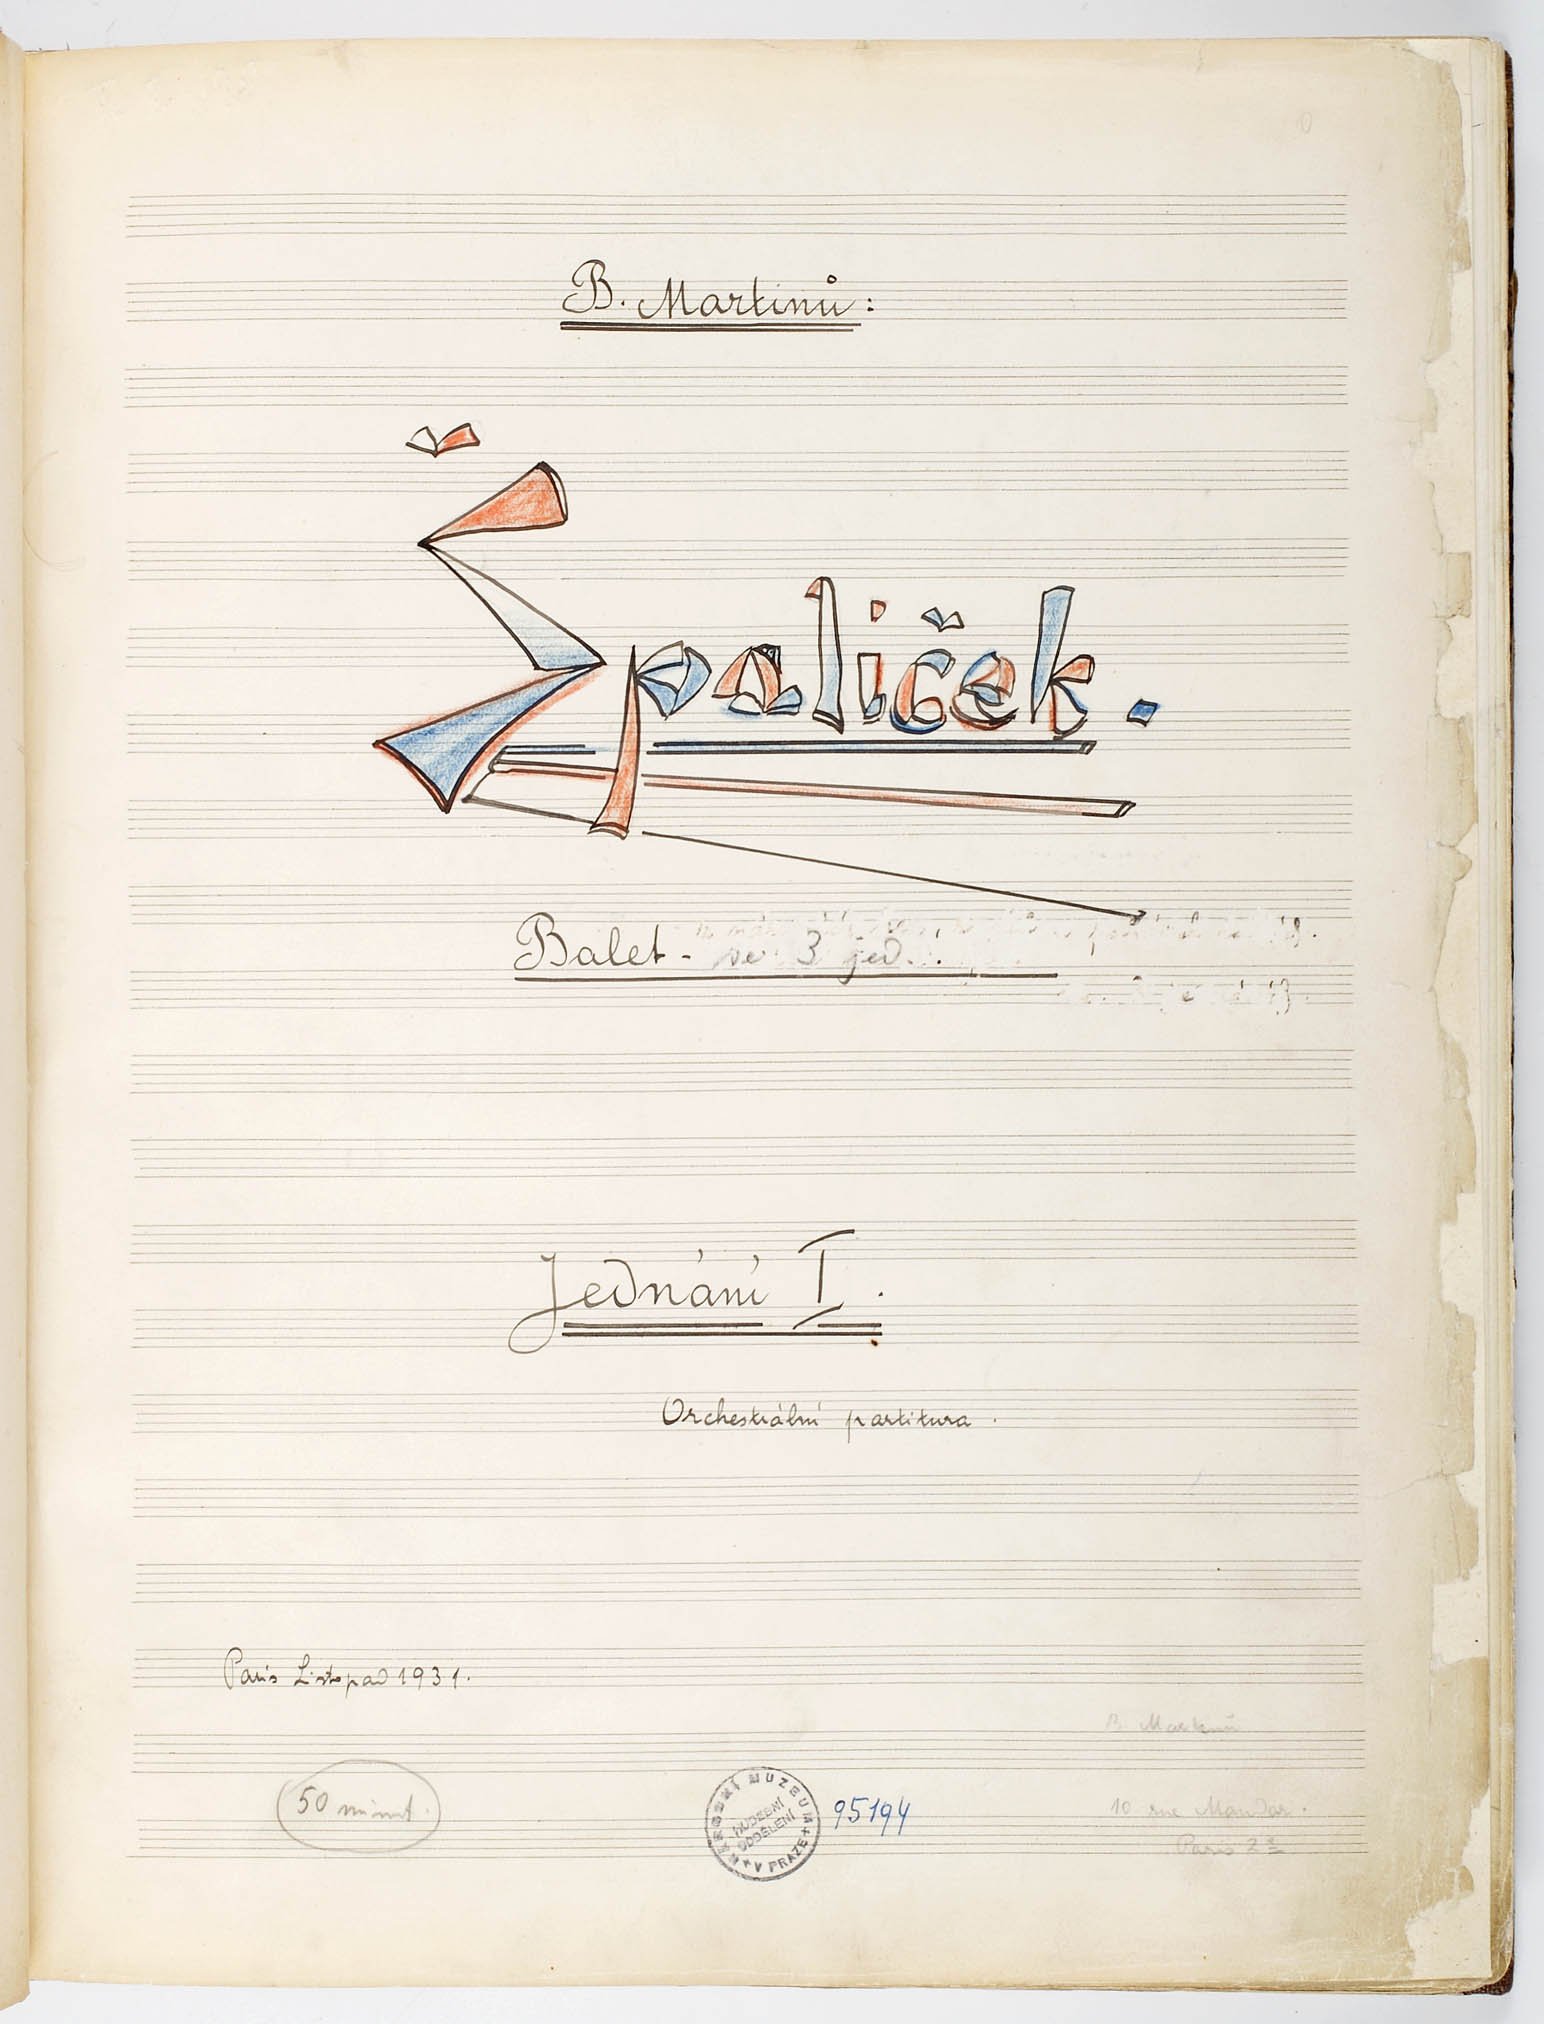 B. Martinů:
Špalíček.
Balet - ve 3 jed.
Jednání I.
Orchestrální partitura.
Paris Listopad 1931.
B. Martinů
50 minut.
NÁRODNÍ MUZEUM V PRAZE
HUDEBNÍ
ODDĚLENÍ
95194
10 rue Mandar.
Paris 2e